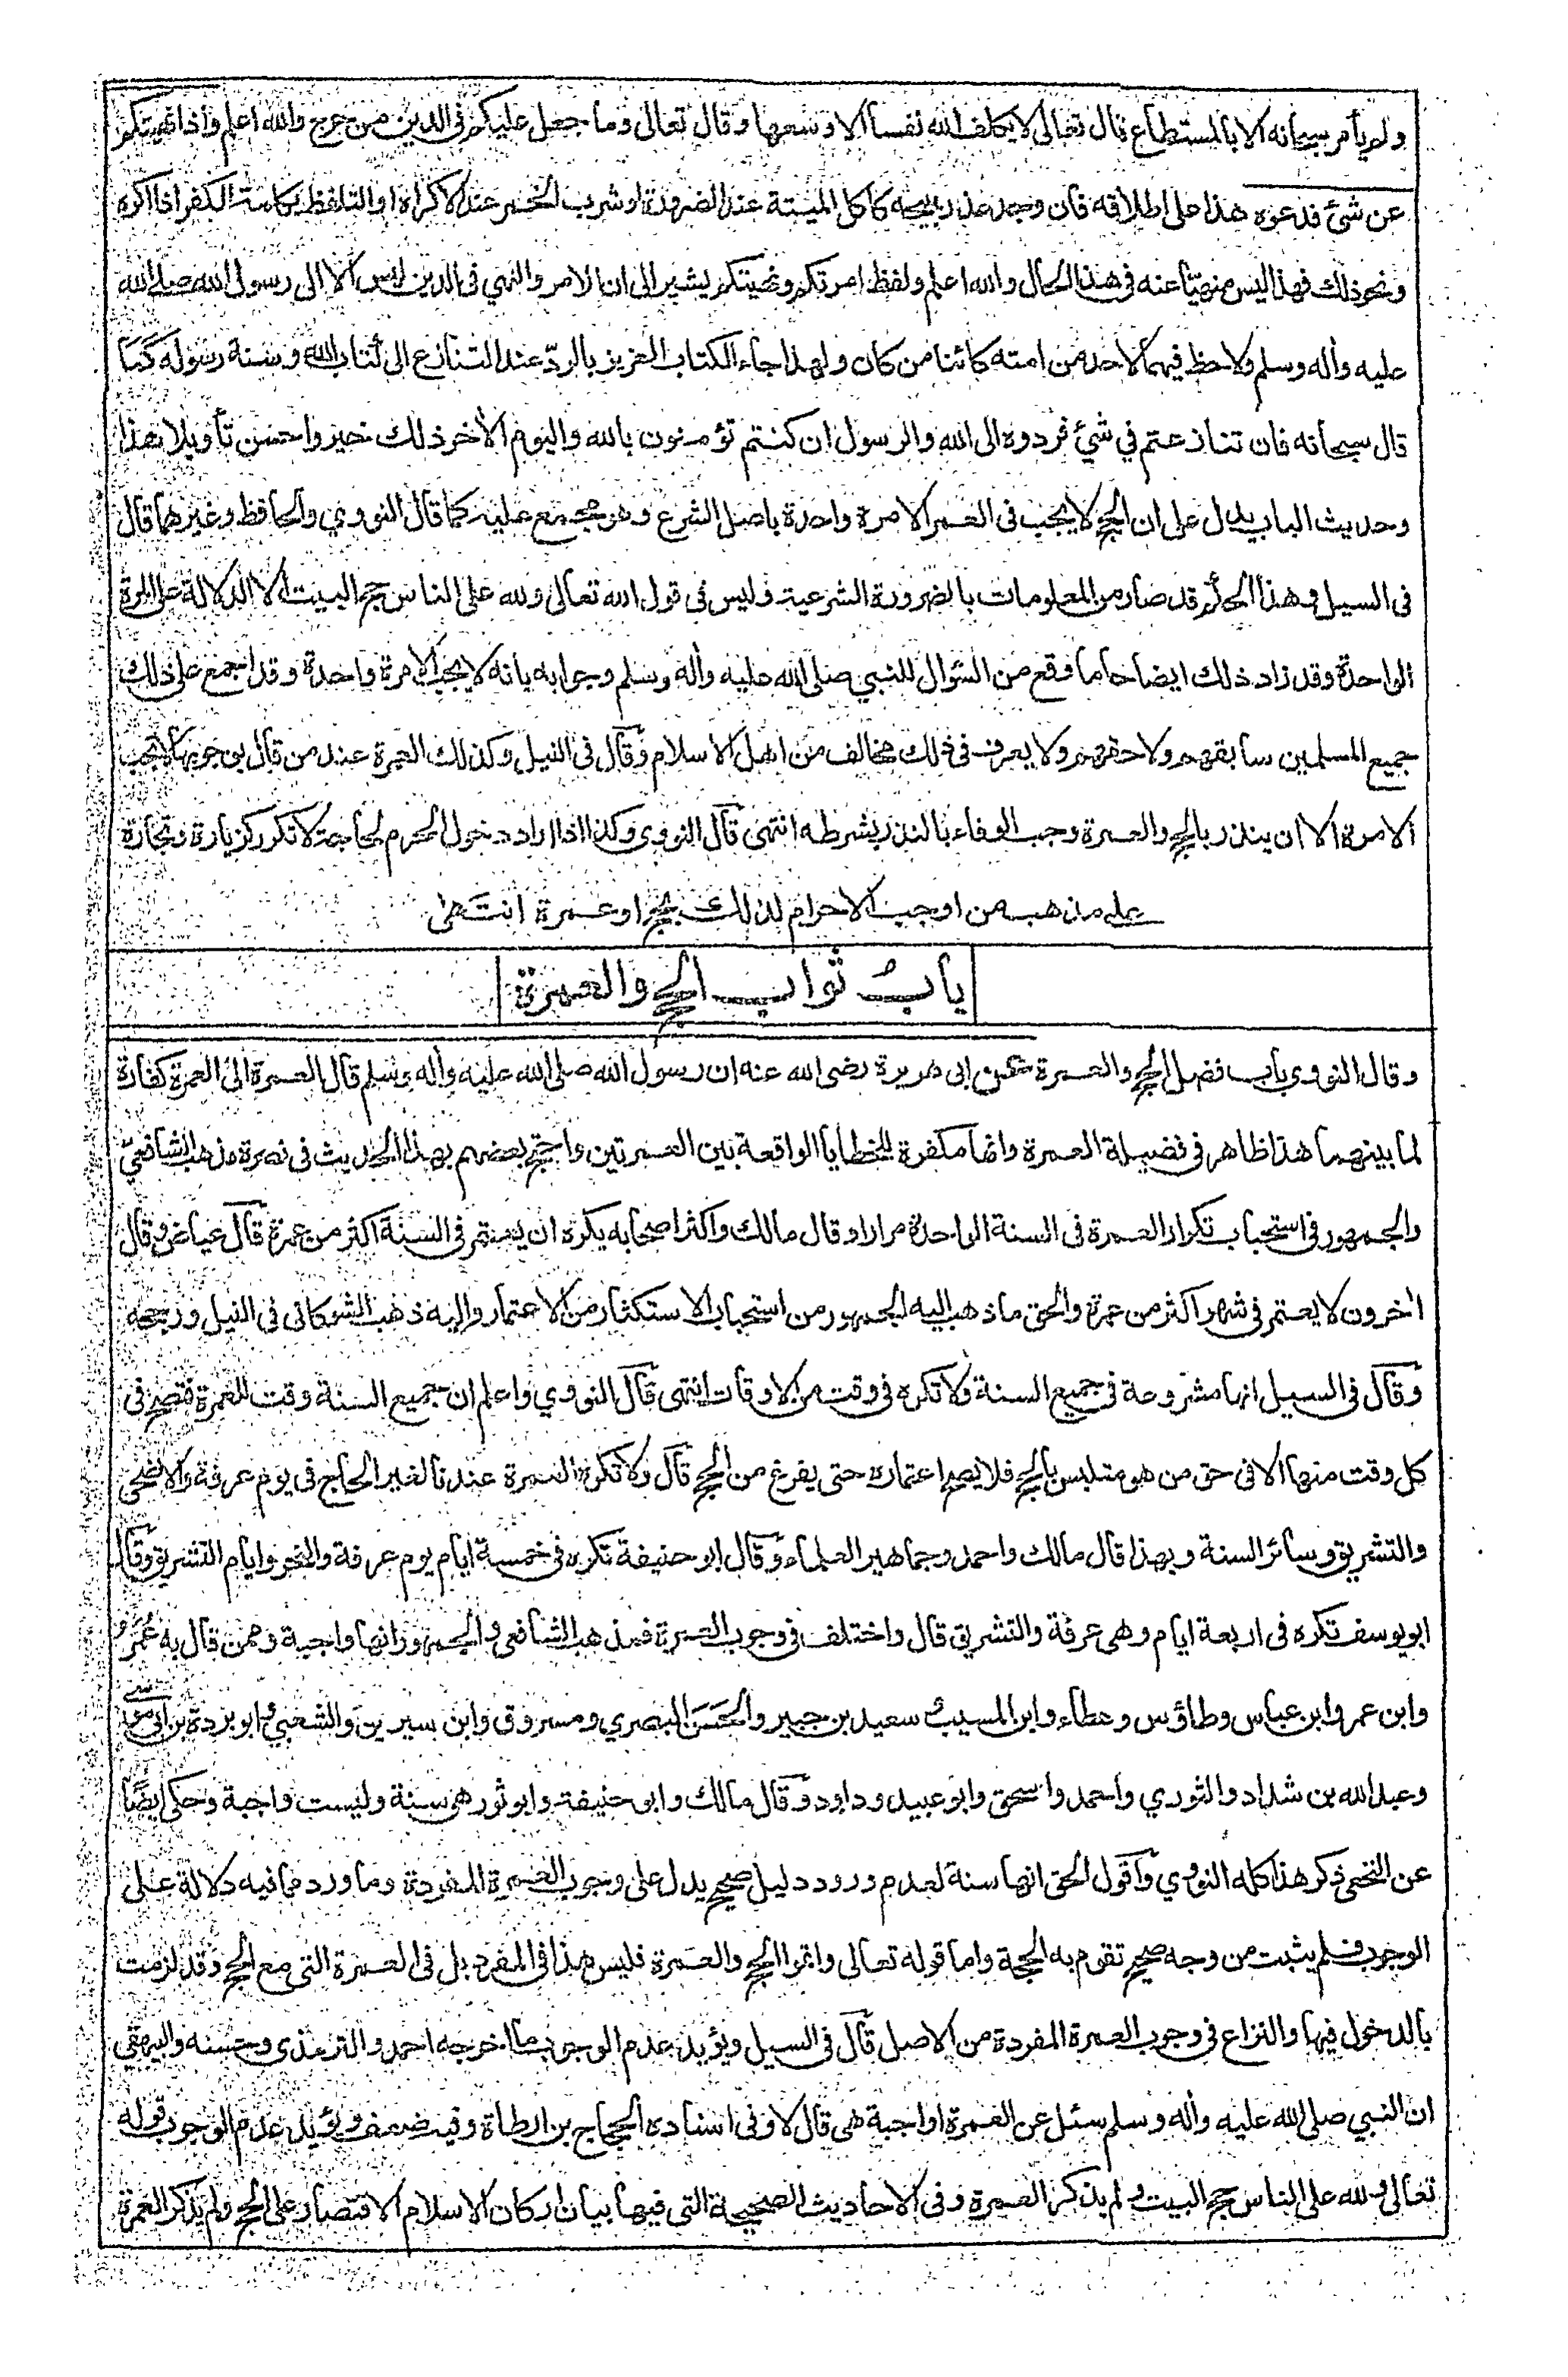 ولم يأمر سبحانه الا بالمستطاع قال تعالى لا يكلف الله نفسا الا وسعها وقال تعالى وما جعل عليكم فى الدين من حرج والله اعلم وأذا نهيتكم
عن شئ فدعوه هذا على اطلاقه فان وجد عذر يبيحه كاكل الميتة عند الضرورة او شرب الخمر عند الاكراه او التلفظ بكلمة الكفر اذا اكره
ونحو ذلك فهذا ليس منهيّا عنه فى هذا الحال والله اعلم ولفظ امرتكم ونهيتكم يشير الى ان الامر والنهي فى الدين ليس الا الى رسول الله صلى الله
عليه وأله وسلم ولا حظ فيهما لاحد من امته كائنا من كان ولهذا جاء الكتاب العزيز بالردّ عند التنازع الى كتاب الله وسنة رسوله كما
قال سبحانه فان تنازعتم في شيْ فردوه الى الله والرسول ان كنتم تؤمنون بالله واليوم الأخر ذلك خير واحسن تأويلا هذا
وحديث الباب يدل على ان الحج لا يجب فى العمر الا مرة واحدة باصل الشرع وهو مجمع عليه كما قال النووي والحافظ وغيرهما قال
فى السيل وهذا الحكم قد صار من المعلومات بالضرورة الشرعية وليس فى قول الله تعالى ولله على الناس حج البيت الا الدلالة على المرة
الواحدة وقد زاد ذلك ايضاحا ما وقع من السؤال للنبي صلى الله عليه وأله وسلم وجوابه بانه لا يجب الا مرة واحدة وقد اجمع على ذلك
جميع المسلمين سابقهم ولاحقهم ولا يعرف فى ذلك مخالف من اهل الاسلام وقال فى النيل وكذلك العمرة عند من قال بوجوبها لا تجب
الا مرة الا ان ينذر بالحج والعمرة وجب الوفاء بالنذر بشرطه انتهى قال النووى وكذا اذا اراد دخول الحرم لحاجة لا تكرر كزيارة وتجارة
على مذهب من اوجب الاحرام لذلك بحج او عمرة انتهى
باب ثواب الحج والعمرة
وقال النووي باب فضل الحج والعمرة عن ابى هريرة رضى الله عنه ان رسول الله صلى الله عليه وأله وسلم قال العمرة الى العمرة كفارة
لما بينهما هذا ظاهر فى فضيلة العمرة وانها مكفرة للخطايا الواقعة بين العمرتين واحتج بعضهم بهذا الحديث فى نصرة مذهب الشافعيّ
والجمهور فى استحباب تكرار العمرة فى السنة الواحدة مرارا وقال مالك واكثر اصحابه يكره ان يعتمر فى السنة اكثر من عمرة قال عياض وقال
اخرون لا يعتمر فى شهر اكثر من عمرة والحق ما ذهب اليه الجمهور من استحباب الاستكثار من الاعتمار واليه ذهب الشوكانى فى النيل ورجحه
وقال فى السيل انها مشروعة فى جميع السنة ولا تكره فى وقت من الاوقات انتهى قال النووي واعلم ان جميع السنة وقت للعمرة فتصح فى
كل وقت منها الا فى حق من هو متلبس بالحج فلا يصح اعتماره حتى يفرغ من الحج قال ولا تكره العمرة عندنا لغير الحاج فى يوم عرفة والاضحى
والتشريق وسائر السنة وبهذا قال مالك واحمد وجماهير العلماء وقال ابو حنيفة تكره فى خمسة ايام يوم عرفة والنحر وايام التشريق وقال
ابو يوسف تكره فى اربعة ايام وهى عرفة والتشريق قال واختلف فى وجوب العمرة فمذهب الشافعى والجمهور انها واجبة وممن قال به عُمَرُ
وابن عمر وابن عباس وطاؤس وعطاء وابن المسيب سعيد بن جبير والحَسَن البصري ومسروق وابن سيرين والشعبي وابو بردة بن ابى موسى
وعبد الله بن شداد والثوري واحمد واسحق وابو عبيد وداود وقال مالك وابى حنيفة وابو ثور هى سنة وليست واجبة وحكى ايضًا
عن النخعى ذكر هذا كله النووي واقول الحق انها سنة لعدم ورود دليل صحيح يدل على وجوب العمرة المفردة وما ورد مما فيه دلالة على
الوجوب فلم يثبت من وجه صحيح تقوم به الحجة واما قوله تعالى واتموا الحج والعمرة فليس هذا فى المفرد بل فى العمرة التى مع الحج وقد لزمت
بالدخول فيها والنزاع فى وجوب العمرة المفردة من الاصل قال فى السيل ويؤيد عدم الوجوب ما اخرجه احمد والترمذى وحسنه والبيهقي
ان النبي صلى الله عليه وأله وسلم سئل عن العمرة اواجبة هى قال لا وفى اسناده الحجاج بن ارطاة وفيه ضعف ويؤيد عدم الوجوب قوله
تعالى ولله على الناس حج البيت ولم يذكر العمرة وفى الاحاديث الصحيحة التى فيها بيان اركان الاسلام الاقتصار على الحج ولم يذكر العمرة